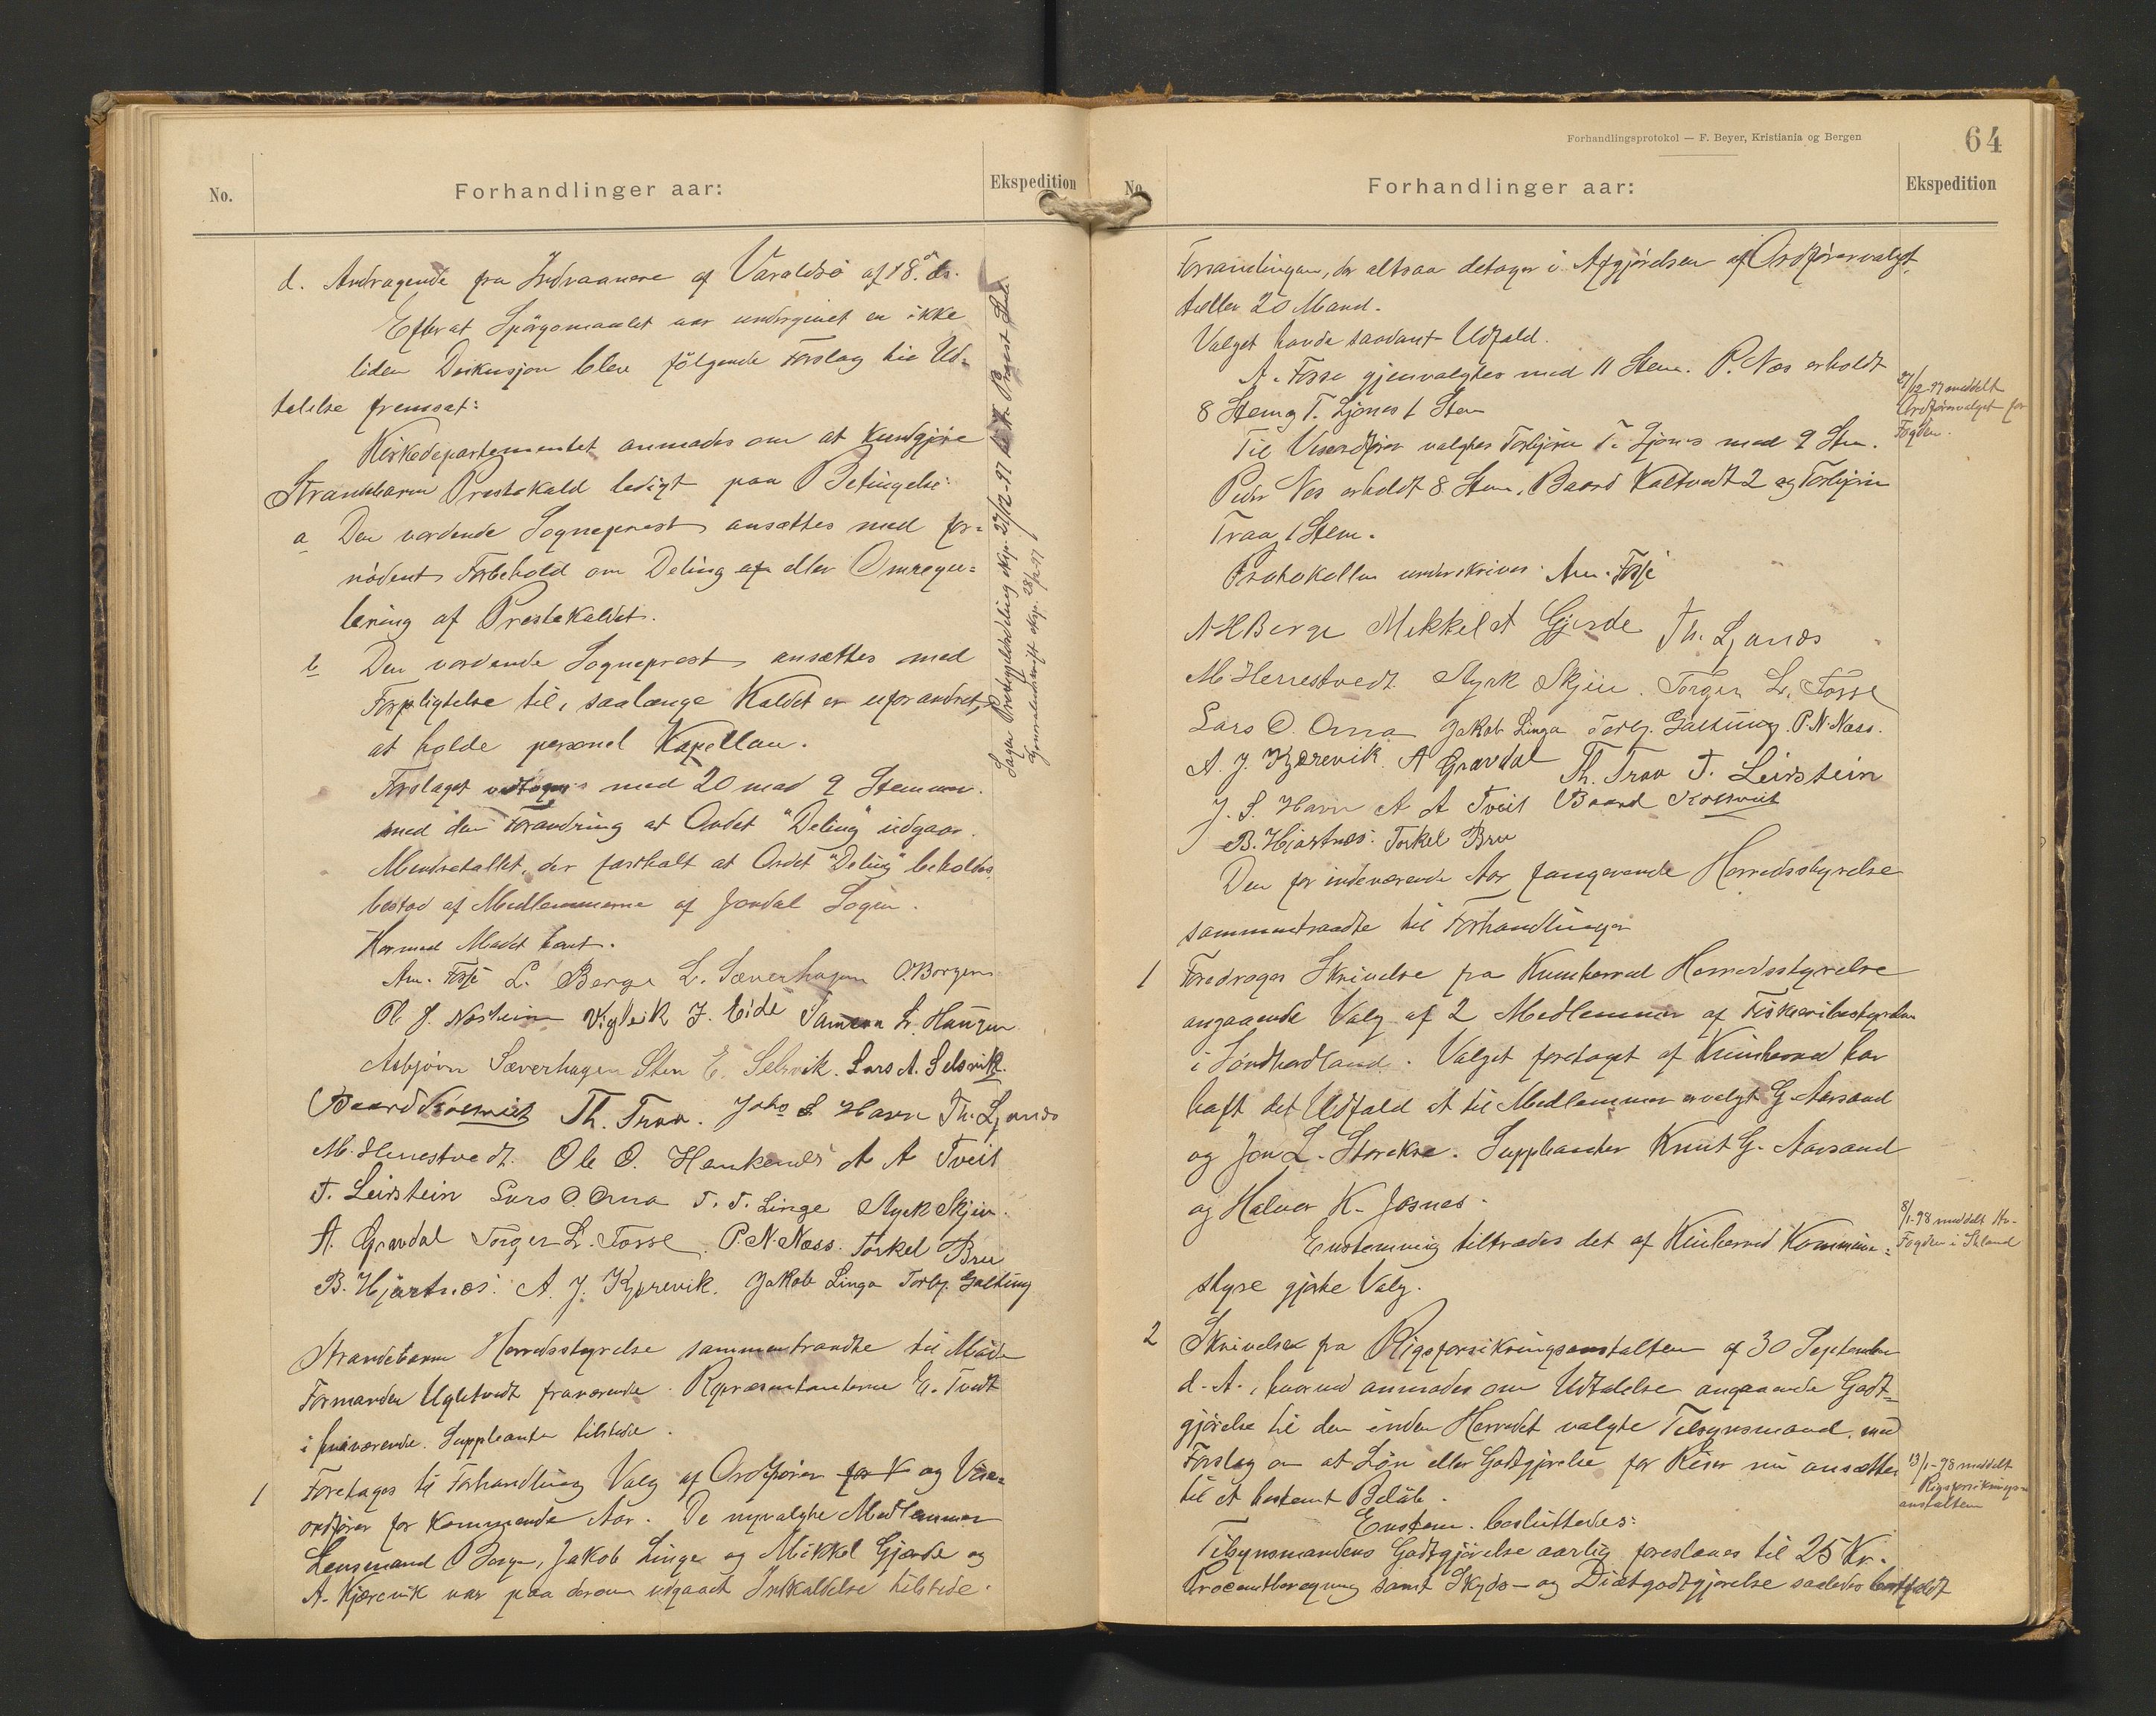 No.
Forhandlinger aar:
Ekspedition
d. Andragende fra Indvaanere af Varaldsö af 18. ds.
Efterat Spörgsmaalet var undergivet en ikke
liden Diskusjon blev fölgende Forslag til Ud-
talelse fremsat:
Kirkedepartementet anmodes om at kundgjøre
Strandebarm Prestekald ledigt paa Betingelse:
a Den vordende Sogneprest ansættes med for-
nödent Forbehold om Deling af eller Omregu-
lering af Prestekaldet.
b Den vordende Sogneprest ansættes med
Forpligtelse til, saalænge Kaldet er uforandret,
at holde personel Kapellan.
Forslaget vedtoges med 20 mod 9 Stemmer.
med den Forandring at Ordet "Deling" udgaar.
Mindretallet, der fastholt at Ordet "Deling" beholdes,
bestod af Medlemmerne af Jondal Sogn.
Hermed Mødet hævet.
Am. Fosse L. Berge L. Sæverhagen O. Borgen
Ol J. Nesheim Vigleik J. Eide Samson L. Haugen
Asbjörn Sæverhagen Sten E. Selsvik. Lars A. Selsvik.
Baard Th. Traa. Johs S Havn Th. Ljones
M. Herrestvedt. Ole O. A A Tveit
T. Leirstein Lars O. Oma T. T. Linge Styrk Skjin.
A. Gravdal Torger L. Fosse. P. N. Næss. Torkel Bru
B. Hjartnes. A. J. Kjærevik. Jakob Linga Torbj. Galtung
Strandebarm Herredsstyrelse sammentraadte til Möde
Formanden Ugletvedt fraværende. Repræsentanterne E. Tvedt
i fraværende. Suppleanter tilstede.
1 Foretages til Forhandling Valg af Ordförer for V og Vise-
ordförer for kommende Aar. De nyvalgte Medlemmer
Lensmand Borgen, Jakob Linge og Mikkel Gjerde og
A. Kjærevik var paa derom udgaaet Indkaldelse tilstede.
27/12-97
28/12-97
Forhandlingsprotokol — F. Beyer, Kristiania og Bergen
64
No.
Forhandlinger aar:
Ekspedition
Forsamlingen, der altsaa deltager i Afgjörelsen af Ordförervalget,
tæller 20 Mand.
Valget havde saadant Udfald.
A. Fosse gjenvalgtes med 11 Stem. P. Nes erholdt
8 Stem og T. Ljones 1 Stem
Til Viseordförer valgtes Torbjörn T. Ljones med 9 Stem.
Peder Nes erholdt 8 Stem, Baard Kaltvedt 2 og Torbjörn
Traa 1 Stem.
27/12-97 meddelt
Ordförervalget for
Fogden.
Protokollen underskrives: Am. Fosse
N H Berge Mekkel A Gjerde Th. Ljones
M. Herrestvedt. Styrk Skjin. Torger L. Fosse
Lars O. Oma Jakob Linga Torbj. Galtung. P. N. Næss.
A. J. Kjærevik. A Gravdal Th. Traa T. Leirstein
J. S. Havn A A Tveit Baard
B. Hjartnes. Torkel Bru
Den for indeværende Aar fungerende Herredsstyrelse
sammentraadte til Forhandlinger
1 Foredroges Skrivelse fra Kvinherred Herredsstyrelse
angaaende Valg af 2 Medlemmer af Fiskeribestyrelsen
i Söndhordland. Valget foretaget af Kvinherred har
haft det Udfald at til Medlemmer er valgt G. Aarsand
og Jon L. Suppleanter Knut G. Aarsand
og Halvor K. Jøsnes.
Enstemmig tiltrædes det af Kvinherred Kommune-
styre gjorte Valg.
8/1-98 meddelt Hr.
Fogden i Shland
2 Skrivelse fra Rigsforsikringsanstalten af 30 September
d. A., hvorved anmodes om Udtalelse angaaende Godt-
gjörelse til den inden Herredet valgte Tilsynsmand, med
Forslag om at Lön eller Godtgjörelse for Reiser nu ansættes
til et bestemt Belöb.
13/1-98 meddelt
Rigsforsikrings-
anstalten
Enstem. besluttedes:
Tilsynsmandens Godtgjörelse aarlig foreslaaes til 25 Kr.
Procentberegning samt Skyds- og Diætgodtgjörelse saaledes bortfaldt